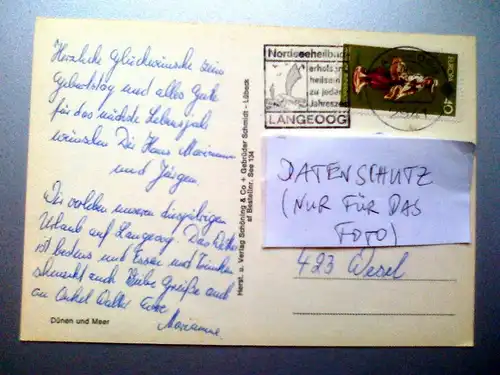 Herzliche Glückwünsche zum
Geburtstag und alles Gute
für das nächste Lebensjahr
wünschen Dir Hans Marianne
und Jürgen.
Wir verleben unseren diesjährigen
Urlaub auf Langeoog. Das Wetter
ist bestens und Essen und Trinken
schmeckt auch. Liebe Grüße auch
an Onkel Walter Eure
Marianne
Dünen und Meer
Herst. u. Verlag Schöning & Co + Gebrüder Schmidt - Lübeck
Bestellnr. See 134
Nordseeheilbad
erholsam
heilsam
zu jeder
Jahreszeit
LANGEOOG
40
DATENSCHUTZ
(NUR FÜR DAS
FOTO)
423 Wesel